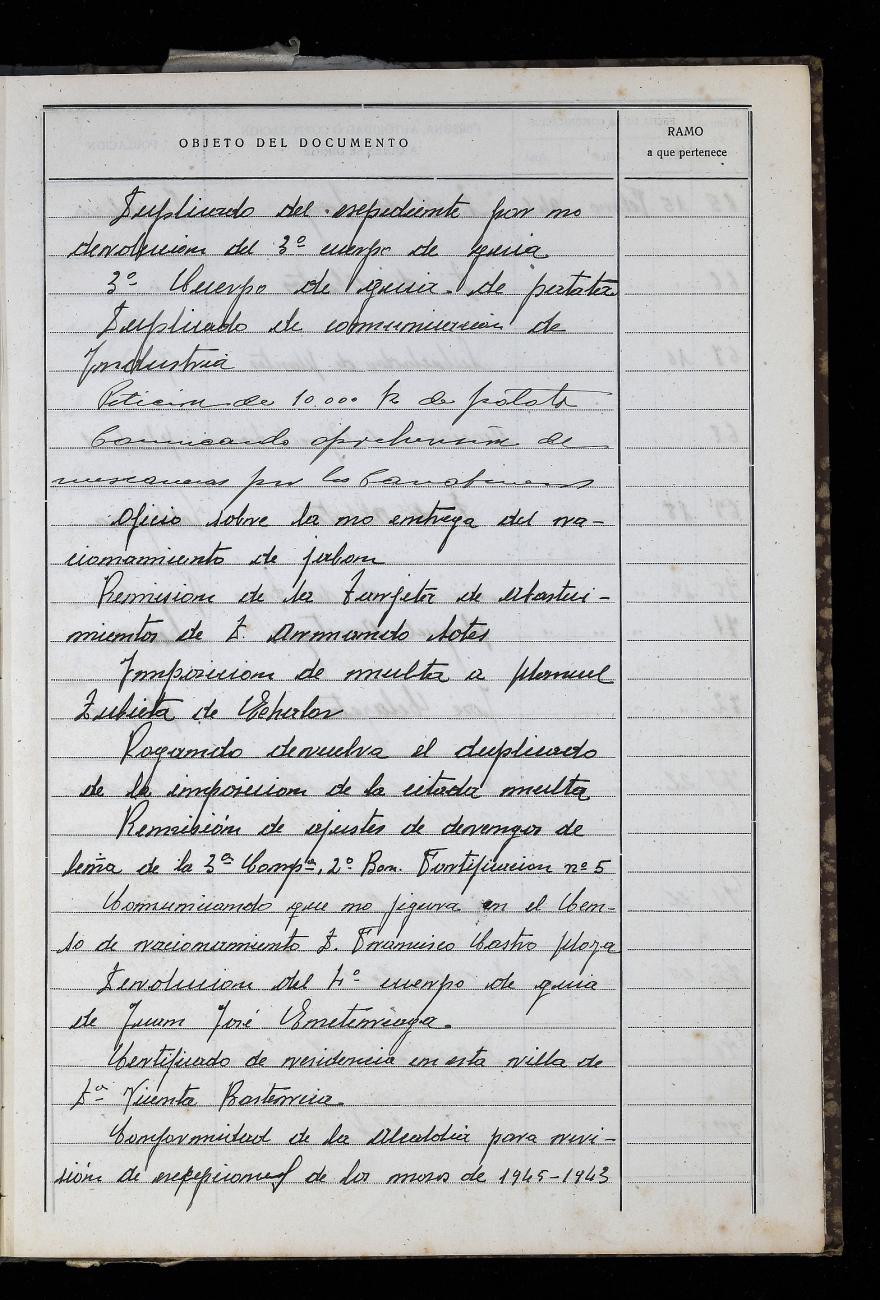 OBJETO DEL DOCUMENTO
RAMO
a que pertenece
Duplicado del espediente por no
devolucion del 3º cuerpo de guia
3º Cuerpo de guia de patata
Duplicado de comunicacion de
Industria
Peticion de 10.000 k de patata
Comunicando aprehensión de
mercancias por los Carabineros
Oficio sobre la no entrega del ra-
cionamiento de jabon
Remision de la Tarjeta de Abasteci-
mientos de D. Armando Sotes
Imposicion de multa a Manuel
Zubieta de Echalar
Rogando devuelva el duplicado
de la imposicion de la citada multa
Remisión de ajustes de devengos de
leña de la 3ª Compª, 2º Bon. Fortificacion nº 5
Comunicando que no figura en el Cen-
so de racionamiento D. Francisco Castro
Devolucion del 4º cuerpo de guia
de Juan José
Certificado de residencia en esta villa de
Dª Vicenta
Conformidad de la Alcaldia para revi-
sión de de los mozos de 1945-1943